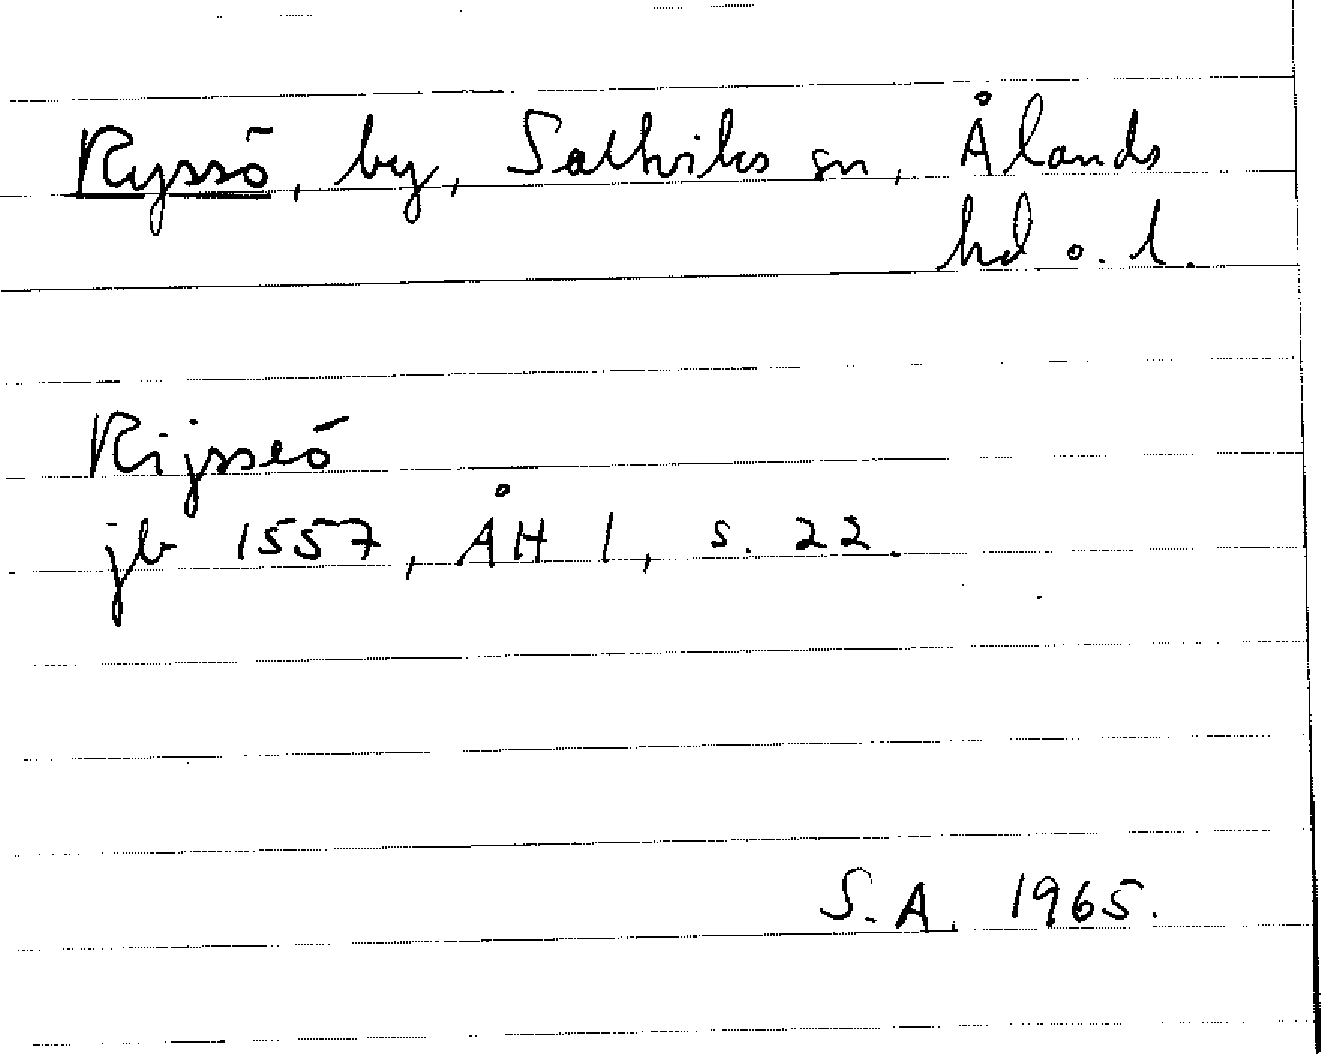 Ryssö, by, Saltviks sn, Ålands
hd o. l.
Rijsseö
jb 1557, ÅH 1, s. 22.
S.A. 1965.